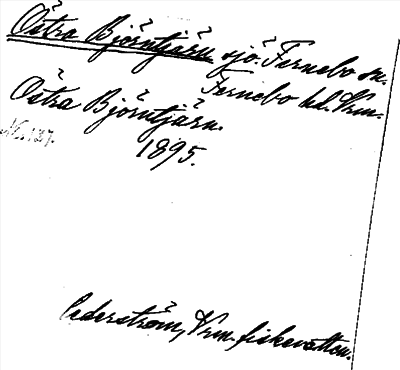 Östra Björntjärn sjö. Fernebo sn.
Fernebo hd. Vrm.
Östra Björntjärn.
1895.
Cederström, Vrm. fiskevatten.